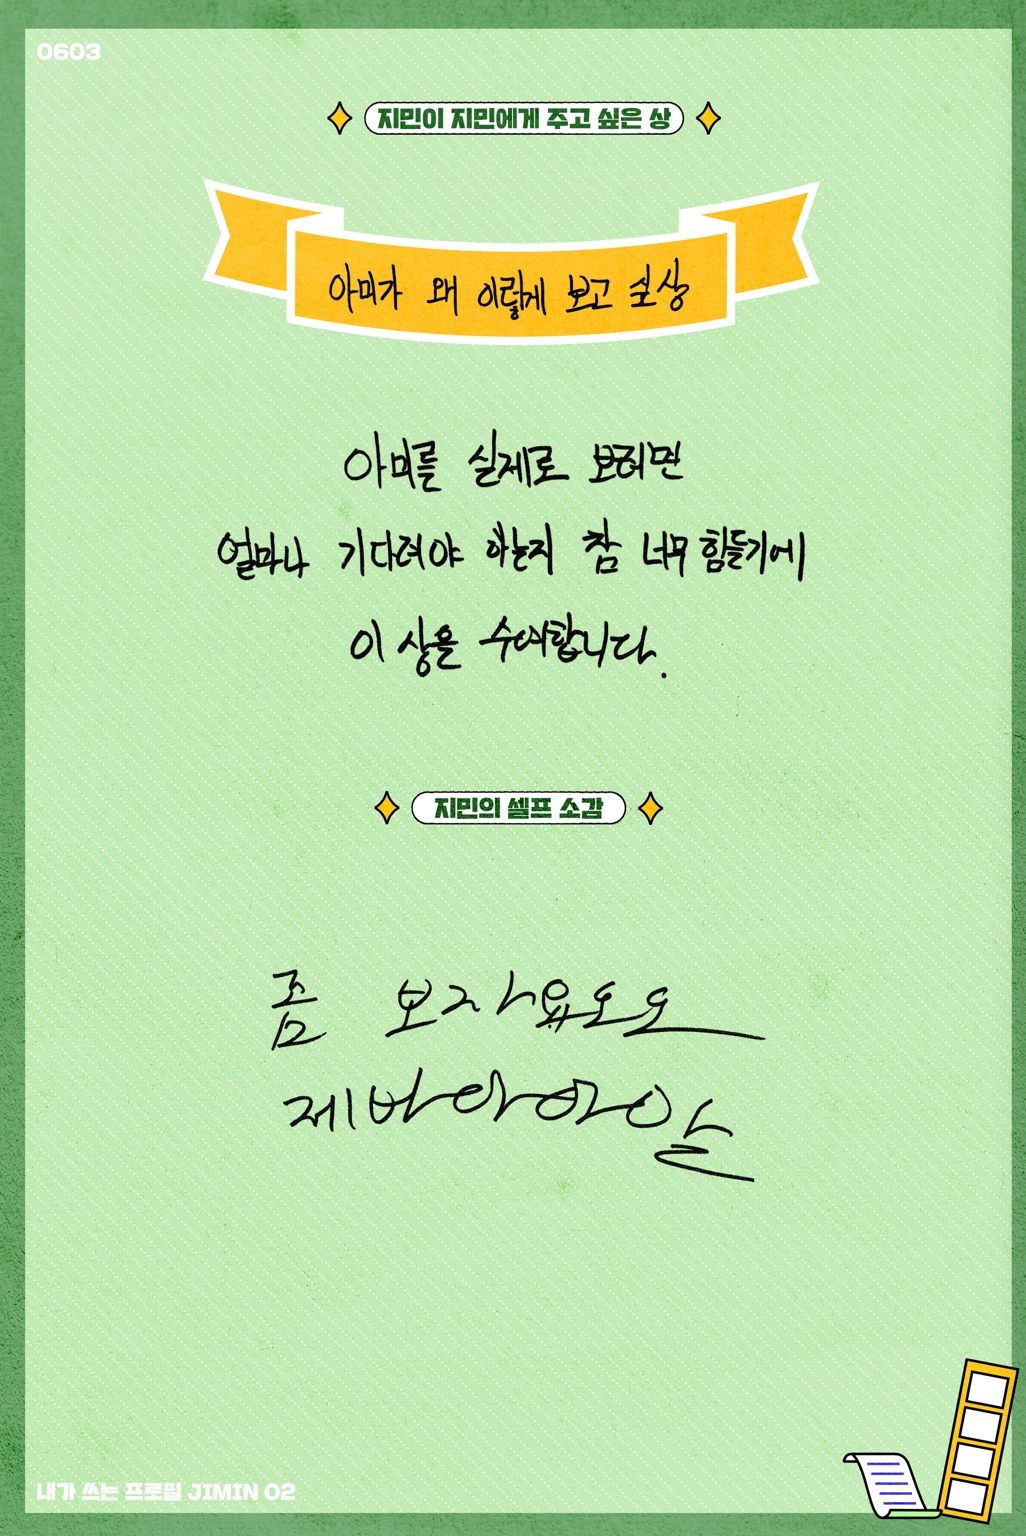 0603
지민이 지민에게 주고 싶은 상
아미가 왜 이렇게 보고 싶상
아미를 실제로 보려면
얼마나 기다려야 하는지 참 너무 힘들기에
이 상을 수여합니다.
지민의 셀프 소감
좀 보자요오오
제바아아알
내가 쓰는 프로필 JIMIN 02